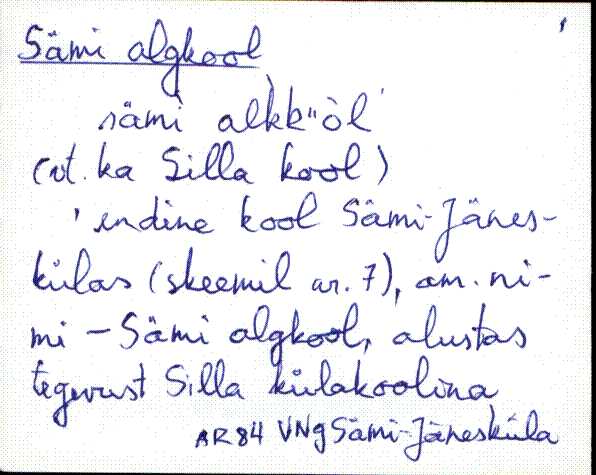 Sämi algkool
sämi alkk"òl'
(vt. ka Silla kool)
'endine kool Sämi-Jänes-
külas (skeemil nr. 7), am. ni-
mi – Sämi algkool, alustas
tegevust Silla külakoolina
AR84 VNg Sämi-Jänesküla